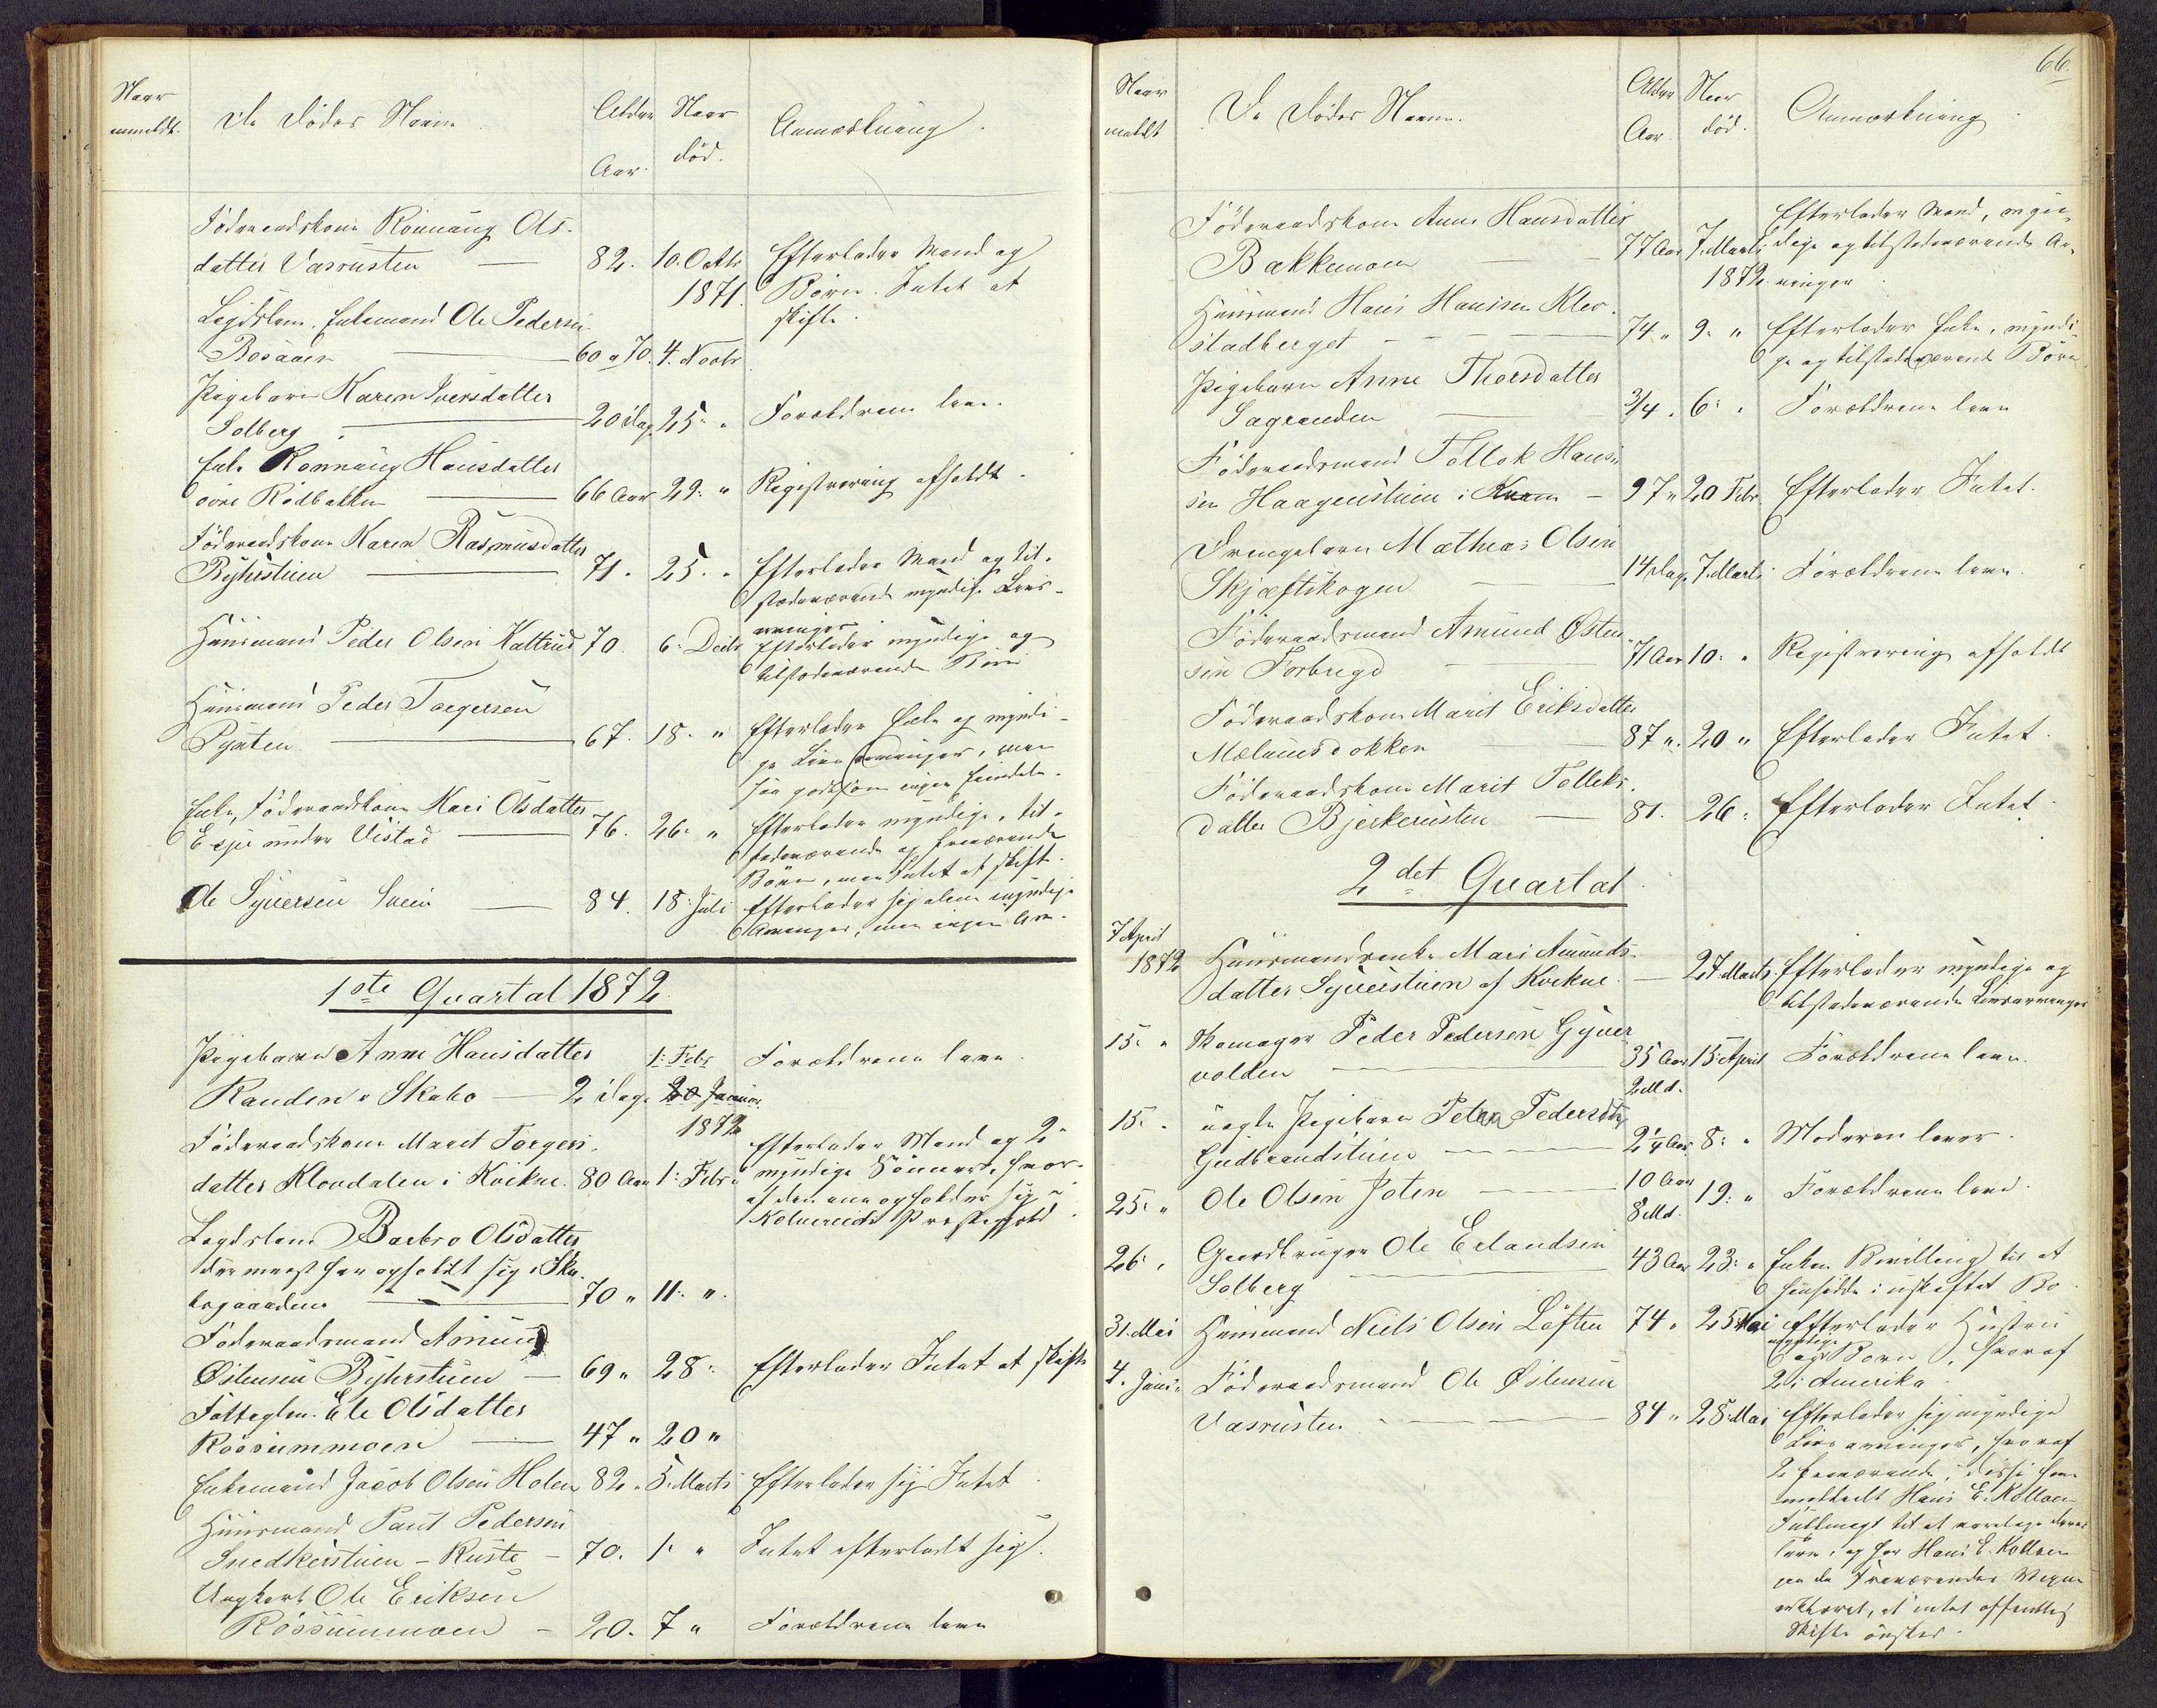 Naar
anmeldt.
De Dödes Navne
Alder
Aar.
Naar
död.
Anmærkning.
Föderaadskone Rönnaug Ols-
datter Vasrusten — 82. 10. Octbr Efterlader Mand og
1871. Börn. Intet at
skifte.
Lægdslem, Enkemand Ole Pedersen
Rosaaen — 60 a 70. 4. Novbr
Pigebarn Karen Iversdatter
Solberg — 20 Dag. 25. " Forældrene leve.
Enke Rönnaug Hansdatter
övre Rödbakken — 66 Aar 29. " Registrering afholdt.
Föderaadskone Karen Rasmusdatter
Byhrstuen — 71. 25. " Efterlader Mand og til-
stedeværende myndige Livs-
arvinger
Huusmand Peder Olsen Kattrud 70. 6. Decbr Efterlader myndige og
tilstedeværende Börn
Huusmand Peder Torgersen
Pynten — 67. 18. " Efterlader Enke og myndi-
ge Livsarvinger, men
saa godt som ingen Eiendele.
Enke, Föderaadskone Mari Olsdatter
Espe under Vistad — 76. 26. " Efterlader myndige, til-
stedeværende og fraværende
Börn, men Intet at skifte.
Ole Syversen Sveen — 84. 18. Juli Efterlader sig alene myndige
Arvinger, men ingen Arv.
1ste Quartal 1872.
Pigebarn Anne Hansdatter 1. Febr Forældrene leve.
Randen i Skabo — 2 Dag. 20 Januar
1872
Föderaadskone Marit Torgers-
datter Klovdalen i Kvikne. 80 Aar 1. Febr. Efterlader Mand og 2
myndige Sönner, hvor-
af den ene opholder sig i
Kolvereids Præstegjæld.
Lægdslem Barbro Olsdatter
der meest har opholdt sig i Ska-
bogaardene — 70 " 11. ".
Föderaadsmand Amund
Östensen Byhrstuen — 69 " 28. Efterlader Intet at skifte
Fatteglem. Ele Olsdatter
Rössummoen — 47 " 20 "
Enkemand Jacob Olsen Holen 82. 5. Marts Efterlader sig Intet.
Huusmand Paul Pedersen
Snedkerstuen - Ruste — 70. 1. " Intet efterladt sig.
Ungkarl Ole Eriksen
Rössummoen — 20. 7 " Forældrene leve
66.
Naar
meldt
De Dödes Navne.
Alder
Aar.
Naar
död.
Anmærkning.
Föderaadskone Anne Hansdatter
Bakkemoen — 77 Aar 7. Marts Efterlader Mand, myn-
dige og tilstedeværende Ar-
1872. vinger.
Huusmand Hans Hansen Klev-
stadberget — 74 " 9. " Efterlader Enke, myndi-
ge og tilstedeværende Börn
Pigebarn Anne Thorsdatter
Sagranden — 3/4. 6. " Forældrene leve
Föderaadsmand Tollok Han-
sen Haagenstuen i Kvam — 97 " 20 Febr. Efterlader Intet.
Drengebarn Mathias Olsen
Skjæftskogen — 14 Dag. 7. Marts Forældrene leve.
Föderaadsmand Amund Østen-
sen Forbregd — 71 Aar 10. " Registrering afholdt
Föderaadskone Marit Eriksdatter
Mælumsdokken — 87 ". 20 " Efterlader Intet.
Föderaadskone Marit Tolleks-
datter Bjerkerusten — 81. 26. Efterlader Intet.
2det Quartal
7 April
1872 Huusmandsenke Mari Amunds-
datter Syverstuen af Kvikne. — 27. Marts. Efterlader myndige og
tilstedeværende Livsarvinger
15. " Skomager Peder Pedersen Gyver
volden — 35 Aar 2 Md. 15. April Forældrene leve.
15. " uægte Pigebarn Petra Pedersdtr
Gudbrandstuen — 2 1/4 Aar 8. " Moderen lever.
25. " Ole Olsen Joten — 10 Aar 8 Md. 19. " Forældrene leve.
26. " Gaardbruger Ole Erlandsen
Solberg — 43 Aar 23. " Enken Bevilling til at
hensidde i uskiftet Bo.
31. Mai Huusmand Niels Olsen Löften 74. 25 Mai Efterlader Hustru
og myndige Börn, hvoraf
2 i Amerika.
4. Juni. Föderaadsmand Ole Östensen
Vasrusten — 84 " 28. Mai Efterlader sig myndige
Livsarvinger, hvoraf
2 fraværende, disse have
meddeelt Hans E. Kolloen
Fuldmagt til at varetage deres
Tarv, og har Hans E. Kolloen
paa de Fraværendes Vegne
erklæret, at intet offentlig
Skifte önskes.